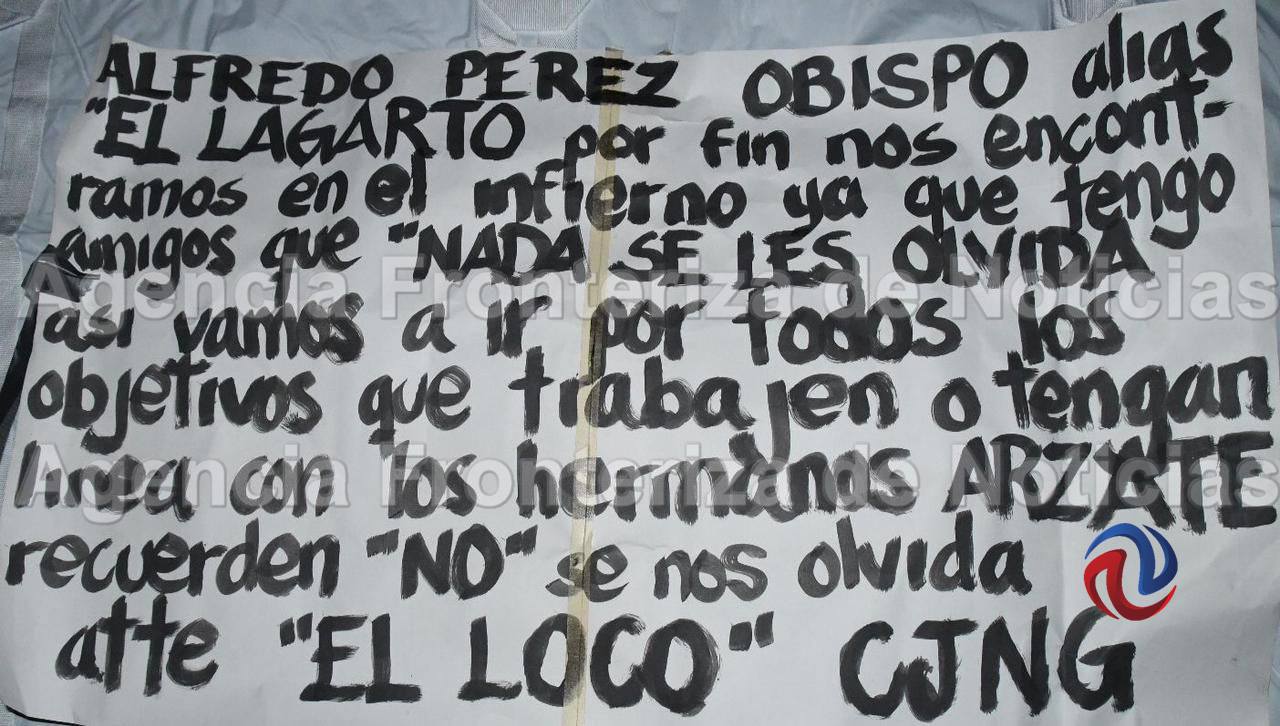 ALFREDO PEREZ OBISPO alias
"EL LAGARTO por fin nos encont-
ramos en el infierno ya que tengo
amigos que "NADA SE LES OLVIDA
asi vamos a ir por todos los
objetivos que trabajen o tengan
linea con los hermanos ARZATE
recuerden "NO" se nos olvida
atte "EL LOCO" CJNG
Agencia Fronteriza de Noticias
Agencia Fronteriza de Noticias